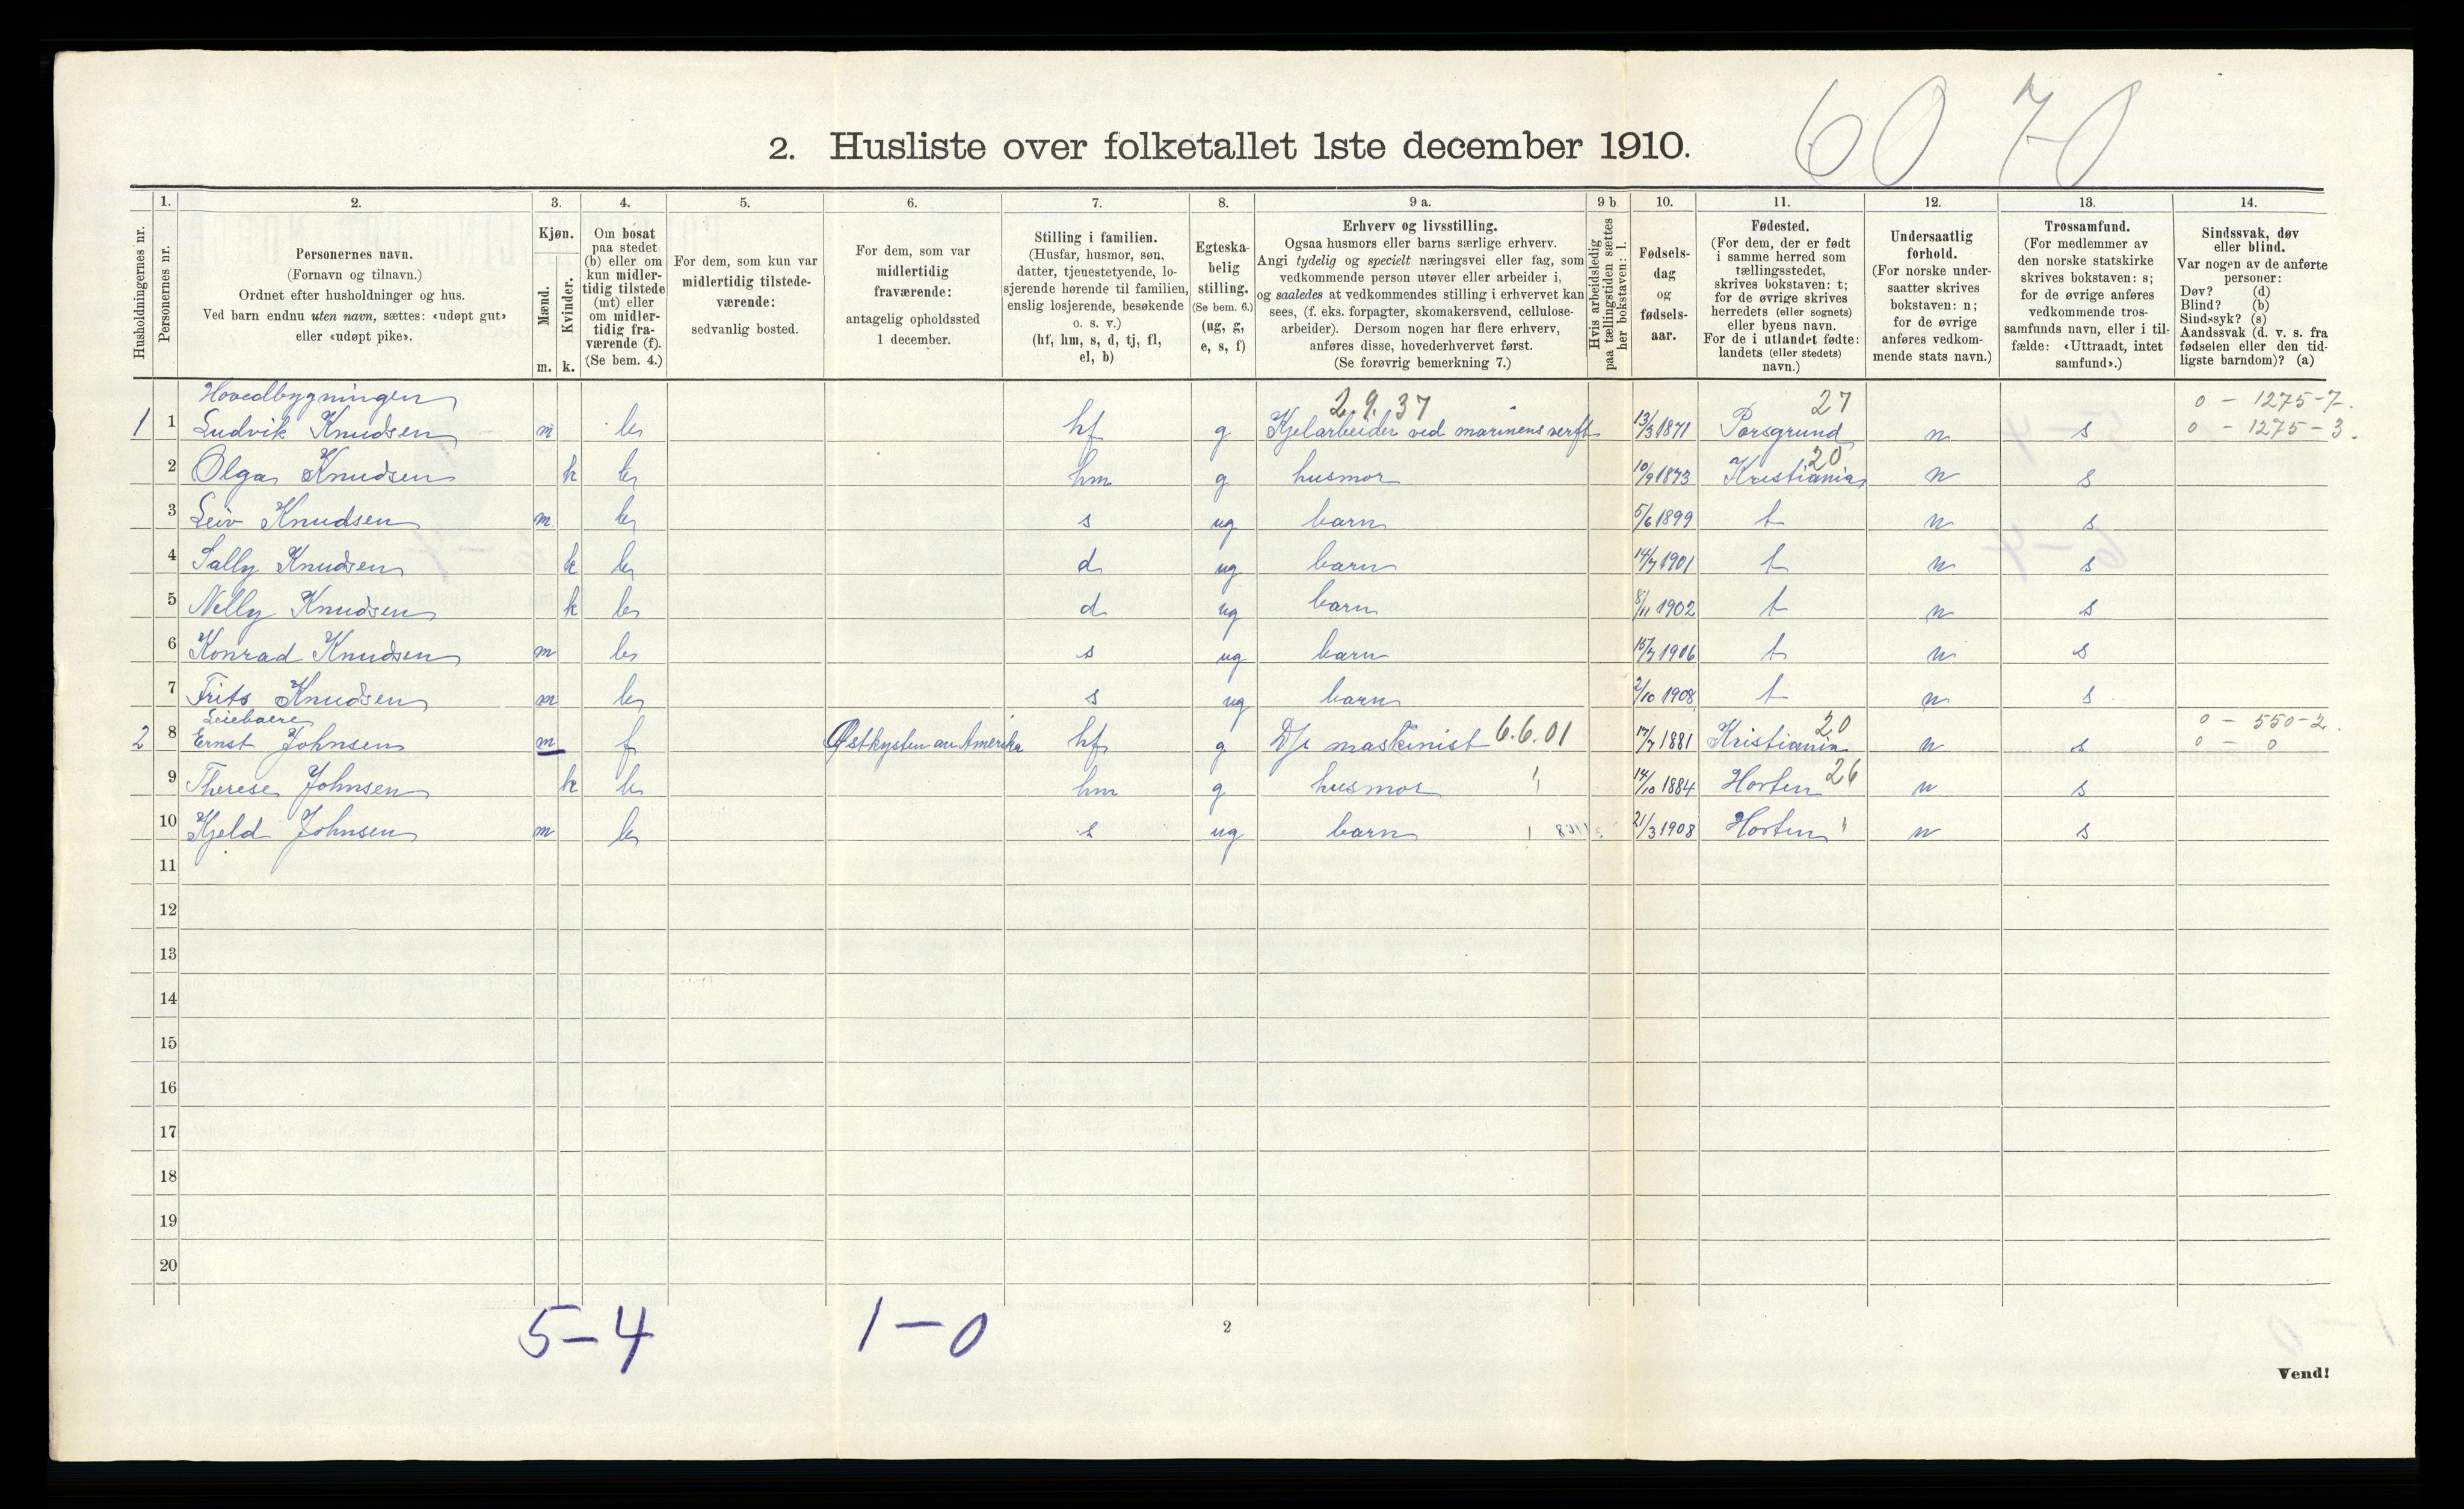 60 70
2. Husliste over folketallet 1ste december 1910.
Husholdningernes nr.
1.
Personernes nr.
2.
Personernes navn.
(Fornavn og tilnavn.)
Ordnet efter husholdninger og hus.
Ved barn endnu uten navn, sættes: «udøpt gut»
eller «udøpt pike».
3.
Kjøn.
Mænd.
Kvinder.
m. k.
4.
Om bosat
paa stedet
(b) eller om
kun midler-
tidig tilstede
(mt) eller
om midler-
tidig fra-
værende (f).
(Se bem. 4.)
5.
For dem, som kun var
midlertidig tilstede-
værende:
sedvanlig bosted.
6.
For dem, som var
midlertidig
fraværende:
antagelig opholdssted
1 december.
7.
Stilling i familien.
(Husfar, husmor, søn,
datter, tjenestetyende, lo-
sjerende hørende til familien,
enslig losjerende, besøkende
o. s. v.)
(hf, hm, s, d, tj, fl,
el, b)
8.
Egteska-
belig
stilling.
(Se bem. 6.)
(ug, g,
e, s, f)
9 a.
Erhverv og livsstilling.
Ogsaa husmors eller barns særlige erhverv.
Angi tydelig og specielt næringsvei eller fag, som
vedkommende person utøver eller arbeider i,
og saaledes at vedkommendes stilling i erhvervet kan
sees, (f. eks. forpagter, skomakersvend, cellulose-
arbeider). Dersom nogen har flere erhverv,
anføres disse, hovederhvervet først.
(Se forøvrig bemerkning 7.)
9 b
Hvis arbeidsledig
paa tællingstiden sættes
her bokstaven: l.
10.
Fødsels-
dag
og
fødsels-
aar.
11.
Fødested.
(For dem, der er født
i samme herred som
tællingsstedet,
skrives bokstaven: t;
for de øvrige skrives
herredets (eller sognets)
eller byens navn.
For de i utlandet fødte:
landets (eller stedets)
navn.)
12.
Undersaatlig
forhold.
(For norske under-
saatter skrives
bokstaven: n;
for de øvrige
anføres vedkom-
mende stats navn.)
13.
Trossamfund.
(For medlemmer av
den norske statskirke
skrives bokstaven: s;
for de øvrige anføres
vedkommende tros-
samfunds navn, eller i til-
fælde: «Uttraadt, intet
samfund».)
14.
Sindssvak, døv
eller blind.
Var nogen av de anførte
personer:
Døv? (d)
Blind? (b)
Sindssyk? (s)
Aandssvak (d. v. s. fra
fødselen eller den tid-
ligste barndom)? (a)
Hovedbygningen 2.9.37 27 0 - 1275-7.
1 1 Ludvik Knudsen m b hf g Kjelarbeider ved marinens verft 13/3 1871 Porsgrund n s 0 - 1275-3.
2 Olga Knudsen k b hm g husmor 10/9 1873 Kristiania 20 n s
3 Leiv Knudsen m b s ug barn 5/6 1899 t n s
4 Sally Knudsen k b d ug barn 14/7 1901 t n s
5 Nelly Knudsen k b d ug barn 8/11 1902 t n s
6 Konrad Knudsen m b s ug barn 15/7 1906 t n s
7 Frits Knudsen m b s ug barn 2/10 1908 t n s
Leieboere 0 - 550-2.
2 8 Ernst Johnsen m f Østkysten av Amerika hf g D/s maskinist 6.6.01 17/7 1881 Kristiania 20 n s 0 - 0
9 Therese Johnsen k b hm g husmor 14/10 1884 Horten 26 n s
10 Kjeld Johnsen m b s ug barn 21/3 1908 Horten " n s
11
12
13
14
15
16
17
18
19
20
5-4 1-0
2
Vend!